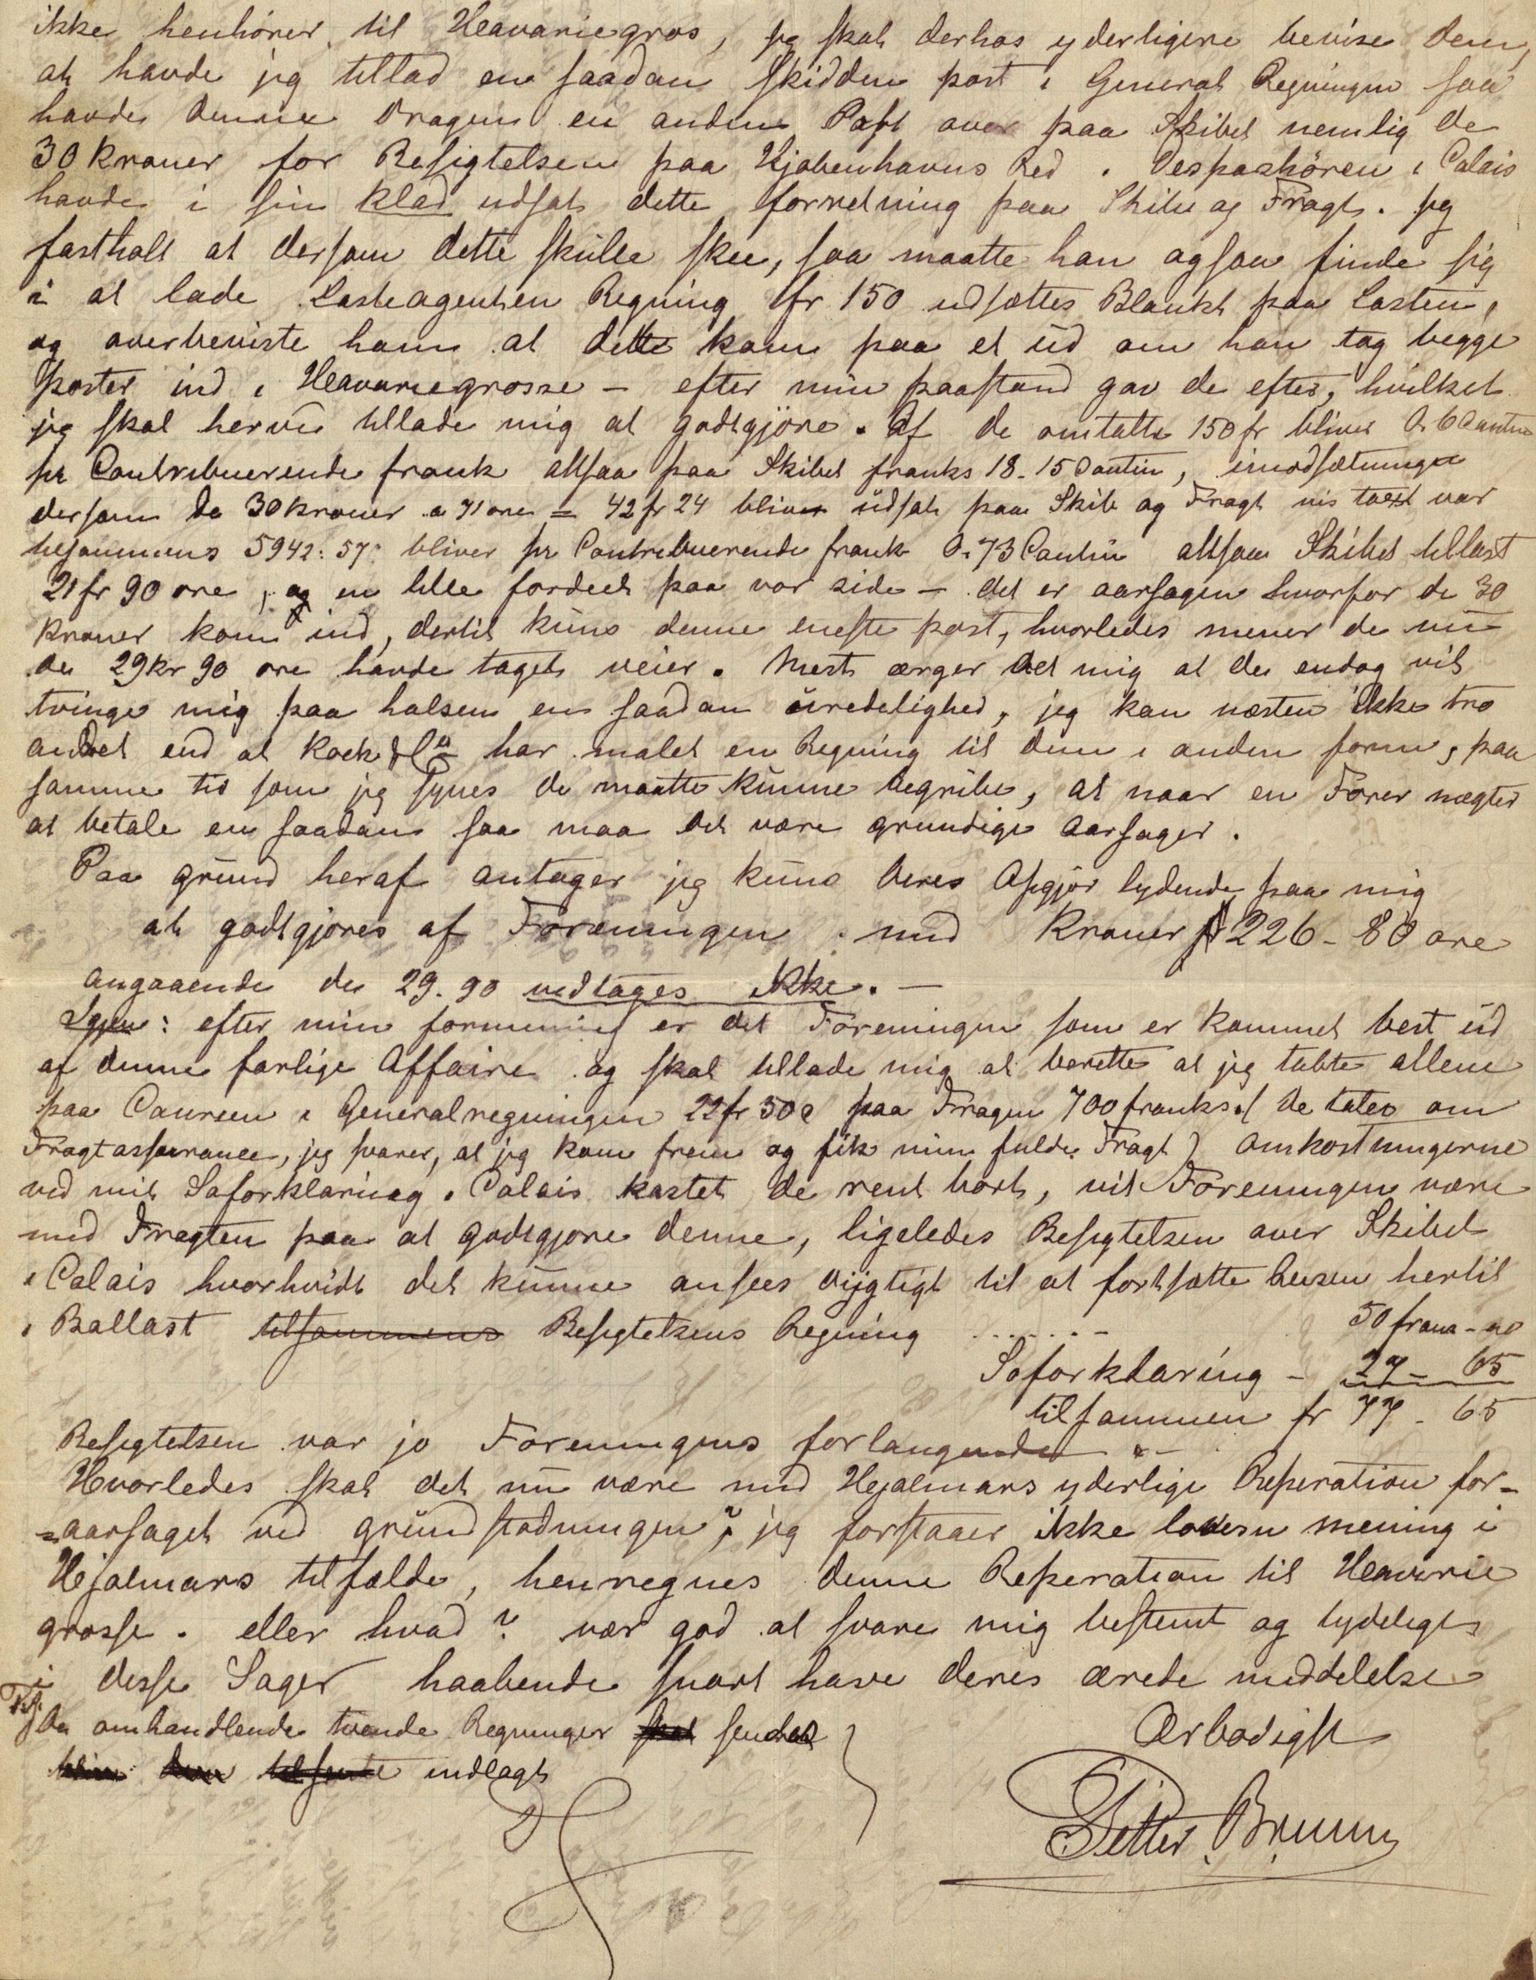 ikke henhörer til Heavariegros, jeg skal derhos yderligere bevise dem,
at havde jeg tillad en saadan skidden post i General Regningen saa
havde denne dragen en anden Post over paa Skibet nemlig de
30 kroner for Besigtelsen paa Kjøbenhavns Red. Despashören i Calais
havde i sin klad udsat dette forretning paa Skibe og Fragt. jeg
fastholt at dersom dette skulle skee, saa maatte han ogsaa finde sig
i at lade Lasteagenten Regning fr 150 udsættes Blankt paa Lasten,
og overbeviste ham at dette kom paa et ud om han tog begge
poster ind i Heavariegrosse – efter min paastand gav de efter, hvilket
jeg skal herved tillade mig at godtgjöre. Af de omtalte 150 fr bliver
pr Contribuerende frank altsaa paa Skibet franks 18-15 Cantin, imodsætningen
dersom de 30 kroner a 71 ore = 42 fr 24 bliver udsat paa Skib og Fragt vis taxt var
tilsammens 5942:57: bliver pr Contribuerende frank 0.73 Cantin altsaa Skibet tillast
21 fr 90 ore, og en lille fordeel paa vor side – det er aarsagen hvorfor de 30
kroner kom ind, dertil kuns denne eneste post, hvorledes mener de nu
de 29 kr 90 ore havde taget veier. Mest ærger det mig at de endog vil
tvinge mig paa halsen en saadan uredelighed, jeg kan næsten ikke tro
andet end at Kock & Co har malet en Regning til dem i anden form, paa
samme tid som jeg synes de maatte kunne begribe, at naar en Fører nægter
at betale en saadan saa maa det være grundige aarsager.
Paa grund heraf antager jeg kuns deres Opgjör lydende paa mig
at godtgjöres af Foreningen med Kroner 226-80 ore
angaaende de 29.90 vedtages ikke. –
efter min formening er det Foreningen som er kommet best ud
af denne farlige Affaire og skal tillade mig at berette at jeg tabte allene
paa Coursen i Generalregningen 22 fr 50 c paa Fragen 700 franks. (de taler om
Fragtassurance, jeg svarer, at jeg kom frem og fik min fulde Fragt) omkostningerne
ved mit Soforklaring i Calais kastet de rent bort, vil Foreningen være
med Fragten paa at godtgjore denne, ligeledes Besigtelsen over Skibet
i Calais hvorhvidt det kunne ansees dygtigt til at fortsætte Reisen hertil
i Ballast tilsammens Besigtelsens Regning ...... – 50 franc –
Soforklaring – 27 – 65
tilsammen fr 77 – 65
Besigtelsen var jo Foreningens forlangende –
Hvorledes skal det nu være med Hjalmars yderlige Reperation for-
=aarsaget ved grundstödningen? jeg forstaaer ikke lovern mening i
Hjalmars tilfælde, henregnes denne Reperation til Heaverie
grosse. eller hvad? vær god at svare mig bestemt og tydeligt
i desse Sager haabende snart have deres ærede meddelelse
De omhandlende tvende Regninger sendes
indlagt
Ærbodigst
Petter Bruun